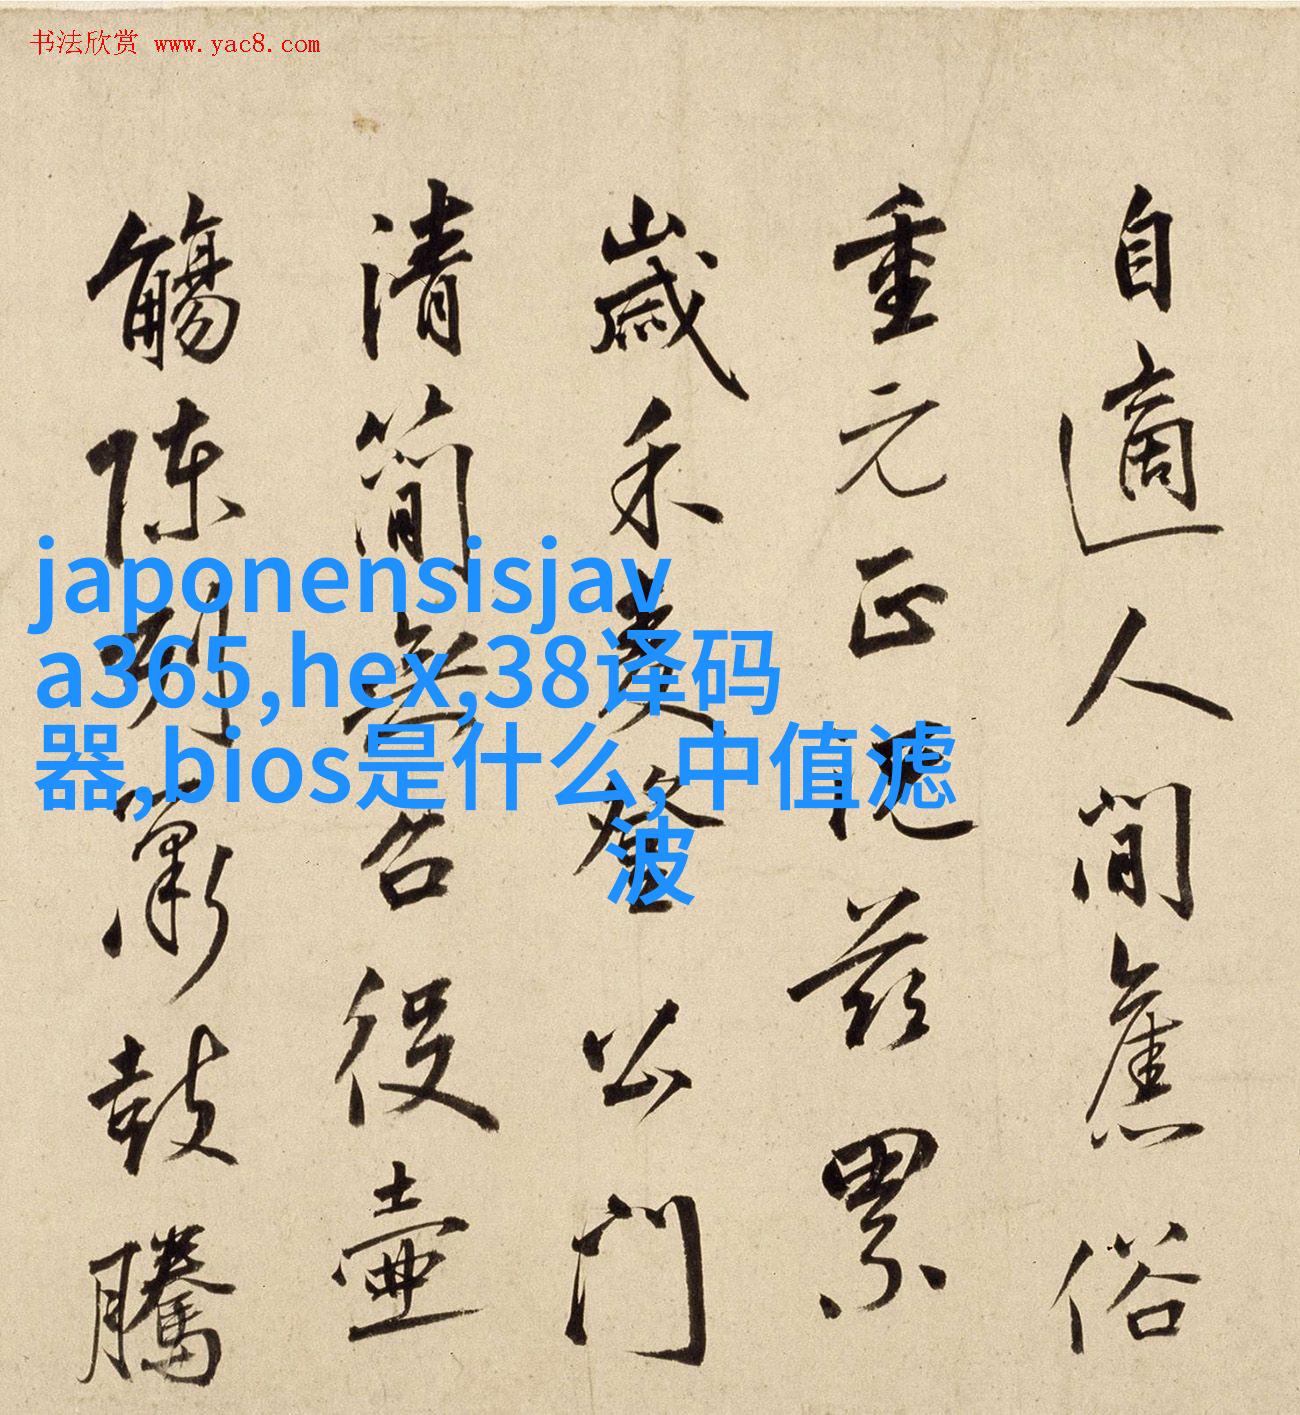 书法欣赏 www.yac8.com
japonensisjav
a365,hex,38译码
器,bios是什么,中值滤
波
自適人間舊俗
重元正況茲累
歲禾麥登公門
清簡無召役壺
觴陳列簫鼓騰